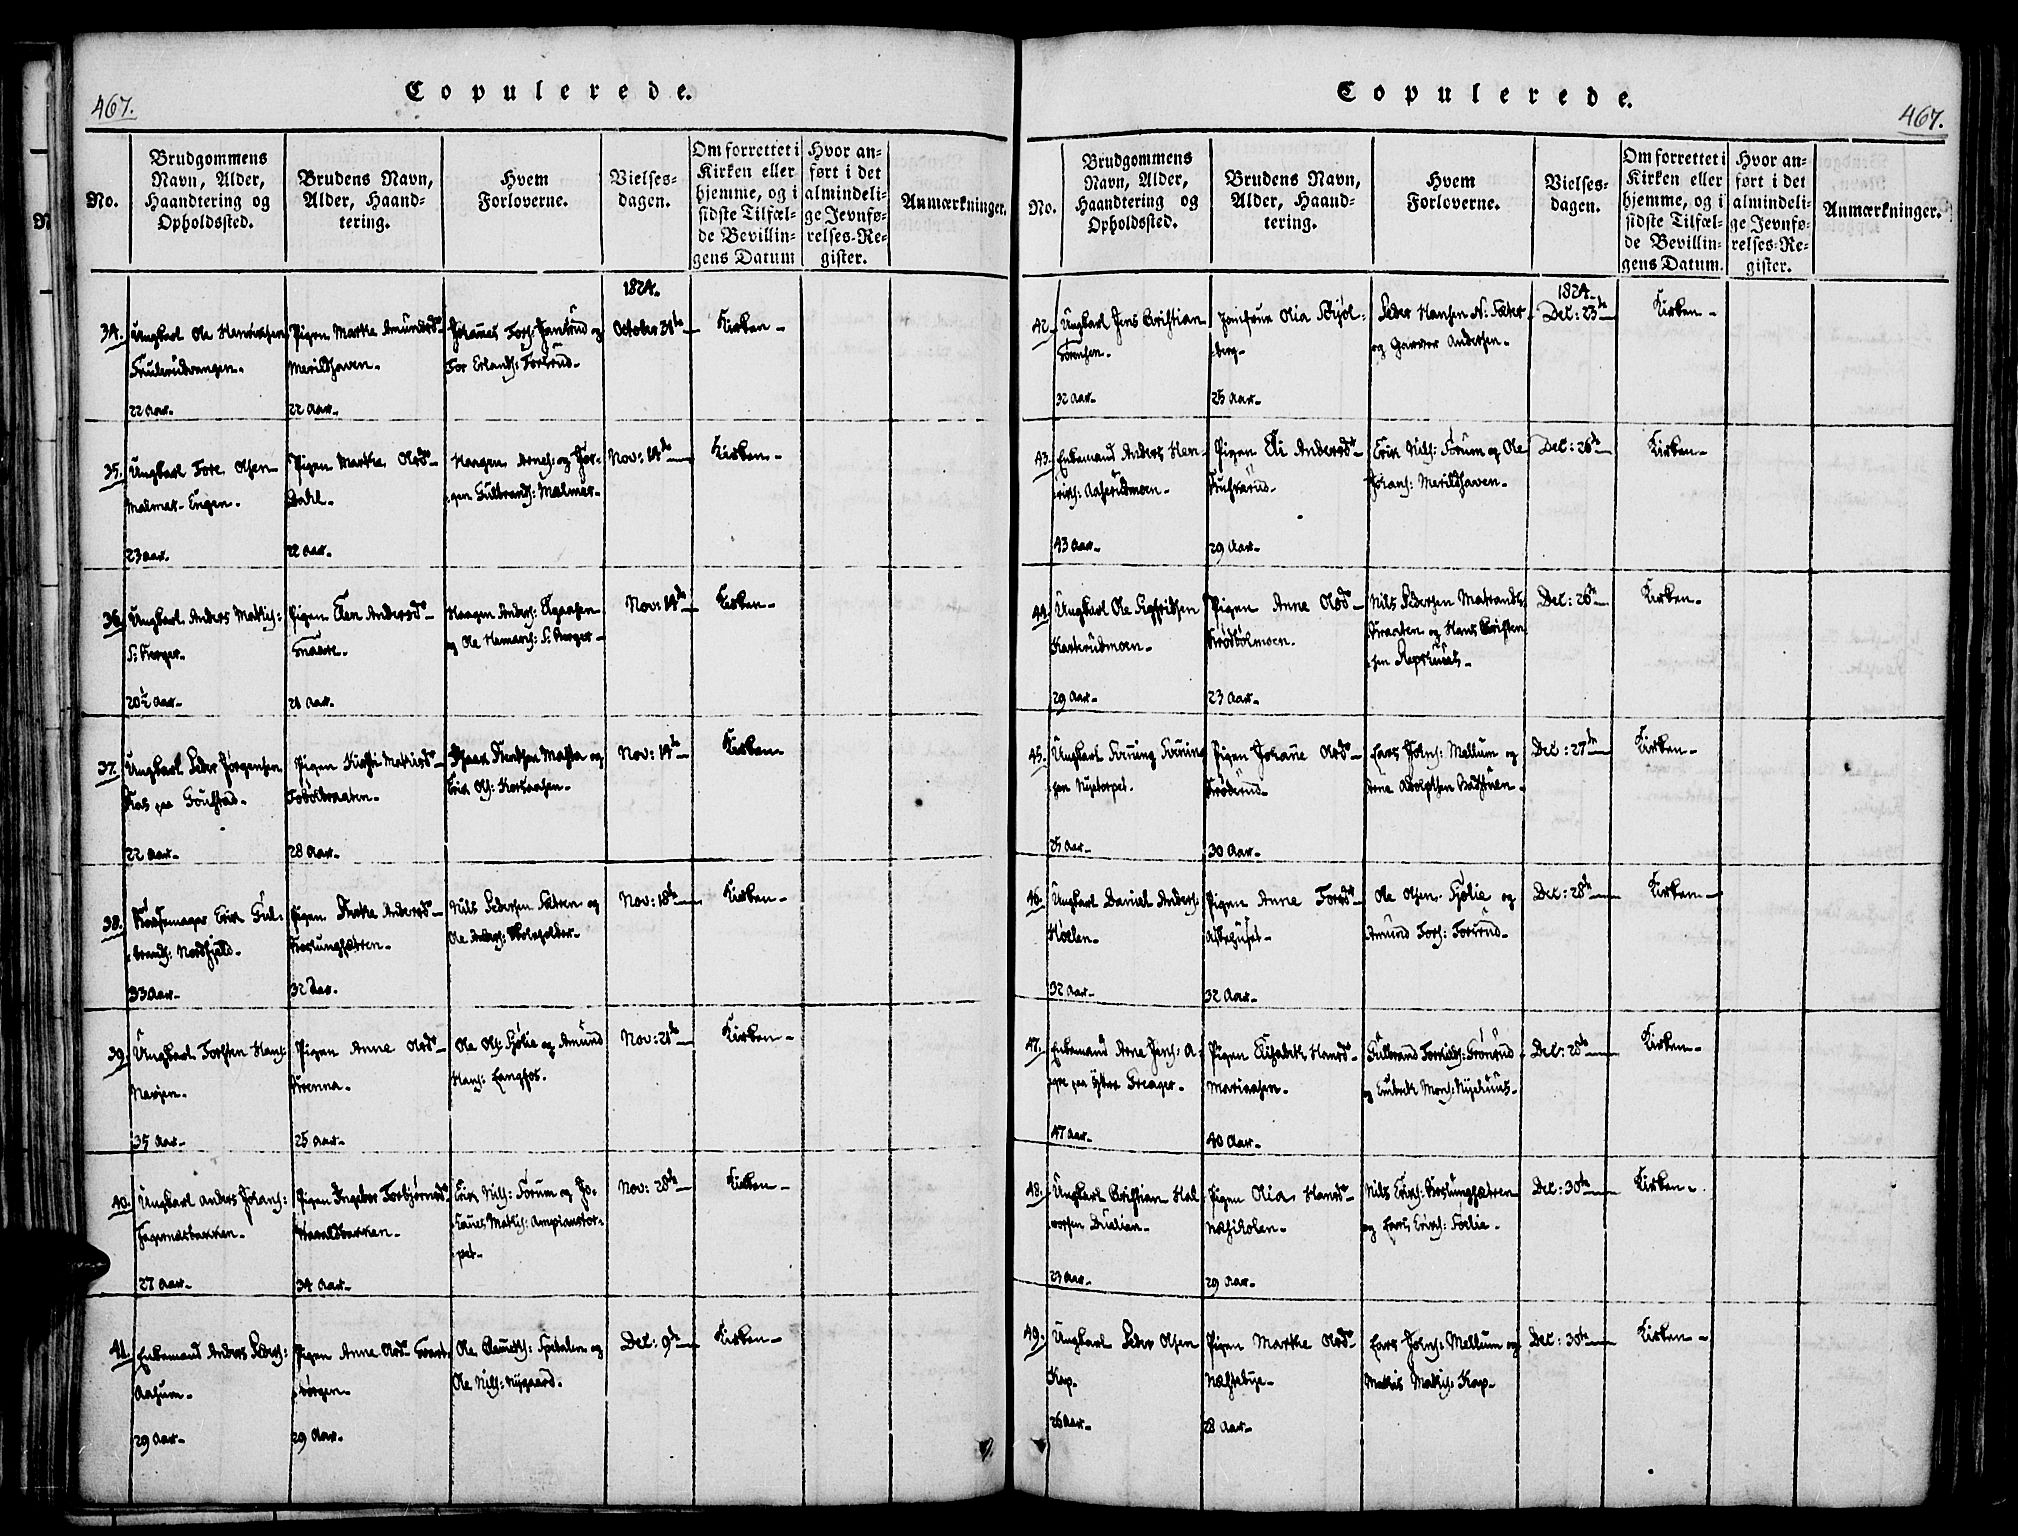 467.
Copulerede.
No.
Brudgommens
Navn, Alder,
Haandtering og
Opholdssted.
Brudens Navn,
Alder, Haand-
tering.
Hvem
Forloverne.
Vielses-
dagen.
Om forrettet i
Kirken eller
hjemme, og i
sidste Tilfæl-
de Bevillin-
gens Datum
Hvor an-
ført i det
almindeli-
ge Jevnfø-
relses-Re-
gister.
Anmærkninger.
1824.
34. Ungkarl Ole Henriksen
22 Aar.
Pigen Marthe Amundsd.
Merildhaven.
22 Aar.
Johanes Tors: og
Tor Erlands: Torsrud.
October 31te
Kirken
35. Ungkarl Tore Olsen
Malmer-Engen.
23 Aar.
Pigen Marthe Olsd.
Dahl.
22 Aar.
Haagen Arnes: og Jør-
gen Gulbrands: Malmer.
Nov: 14de
Kirken
36. Ungkarl Anders Mathis:
S: Berger.
20½ Aar.
Pigen Elen Andersd.
21 Aar.
Haagen Anders:
og Ole Hemans: S: Berger
Nov: 14de
Kirken
37. Ungkarl Peder Jørgensen
22 Aar.
Pigen Kirsti Mathisd.
28 Aar.
og
Erik Ols: Korsaasen.
Nov: 14de
Kirken
38. Erik Gul-
brands: Nordhjeld.
33 Aar.
Pigen Andersd.
32 Aar.
Nils Pedersen Sætren og
Ole Anders: Skoleholder.
Nov: 18de
Kirken
39 Ungkarl Torsten Hans:
35 Aar.
Pigen Anne Olsd.
Brenna.
25 Aar.
Ole Ols: Fjølie og Amund
Hans: Langfos.
Nov: 21de
Kirken
40. Ungkarl Anders Johans:
27 Aar.
Pigen Ingebor Torbjørnsd.
Haraldbakken.
34 Aar.
Erik Nils: Sorum og Jo-
hanes Mathis: Amplanstor-
pet.
Nov: 28de
Kirken
41. Enkemand Anders Peders:
Aasum.
29 Aar.
Pigen Anne Olsd.
29 Aar.
Ole Spetalen og
Ole Nils: Nygaard.
Dec: 9de
Kirken
Copulerede.
467.
No.
Brudgommens
Navn, Alder,
Haandtering og
Opholdssted.
Brudens Navn,
Alder, Haand-
tering.
Hvem
Forloverne.
Vielses-
dagen.
Om forrettet i
Kirken eller
hjemme, og i
sidste Tilfæl-
de Bevillin-
gens Datum.
Hvor an-
ført i det
almindeli-
ge Jevnfø-
relses-Re-
gister.
Anmærkninger.
1824.
42. Ungkarl Jens Christian
Sørensen.
32 Aar.
Jomfrue Olia Skjøl-
berg.
25 Aar.
Peder Hansen N: Sæter
og Gunder Andersen.
Dec: 23de
Kirken
43. Enkemand Anders Hen-
riks: Aaserudmoen.
43 Aar.
Pigen Eli Andersd.
29 Aar.
Erik Nils: Sorum og Ole
Johans: Merildhaven.
Dec: 26de
Kirken
44. Ungkarl Ole Sigfridsen
Kasterudmoen.
29 Aar.
Pigen Anne Olsd.
23 Aar.
Nils Pedersen Matrands
Braaten og Hans Christen
sen
Dec: 26de
Kirken
45. Ungkarl
25 Aar.
Pigen Johane Olsd.
30 Aar.
Lars Johns: Mellum og
Arne Adolphsen Badstuen.
Dec: 27de
Kirken
46. Ungkarl Daniel Anders:
Holen.
32 Aar.
Pigen Anne Torsd.
32 Aar.
Ole Olsen Fjølie og
Amund Tors: Torsrud.
Dec: 28de
Kirken
47. Enkemand Arne Jens:
47 Aar.
Pigen Elisabeth Hansd.
Mariaasen.
40 Aar.
Gulbrand
og Embrek Mons: Nyehuus.
Dec: 28de
Kirken
48. Ungkarl Christian Hal
vorsen
23 Aar.
Pigen Olia Hansd.
29 Aar.
Nils Eriks:
og Lars Eriks:
Dec: 30te
Kirken
49. Ungkarl Peder Olsen
Kap.
26 Aar.
Pigen Marthe Olsd.
Næstebye.
28 Aar.
Lars Johns: Mellum og
Mathis Mathis: Kap.
Dec: 30te
Kirken